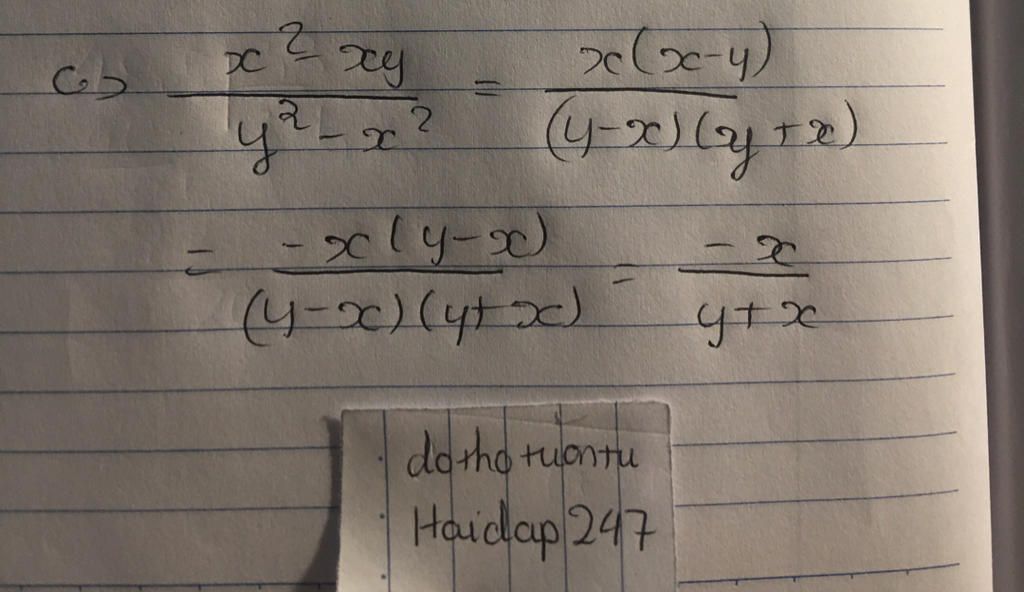 c> x² - xy / y² - x² = x(x-y) / (y-x)(y+x)
= -x(y-x) / (y-x)(y+x) = -x / y+x
dothotuontu
Hoidap247